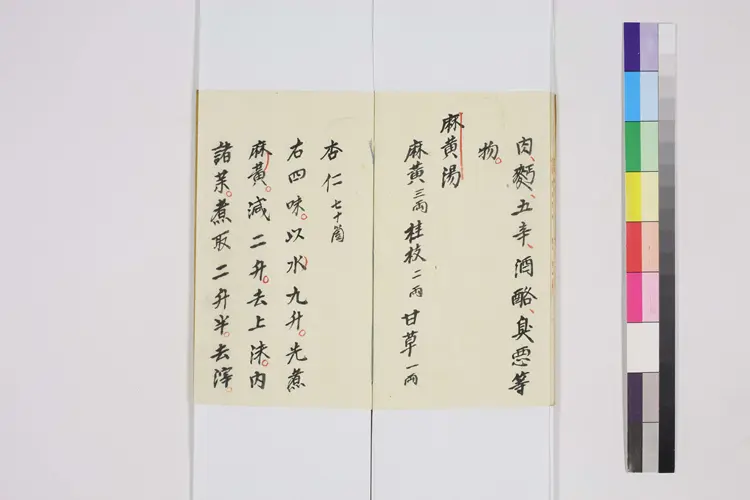 肉、麪、五辛、酒酪、臭悪等
物。
麻黄湯
麻黄三兩桂枝二兩甘草一兩
杏仁七十箇
右四味。以水九升。先煮
麻黄。減二升。去上沫。内
諸薬。煮取二升半。去滓。